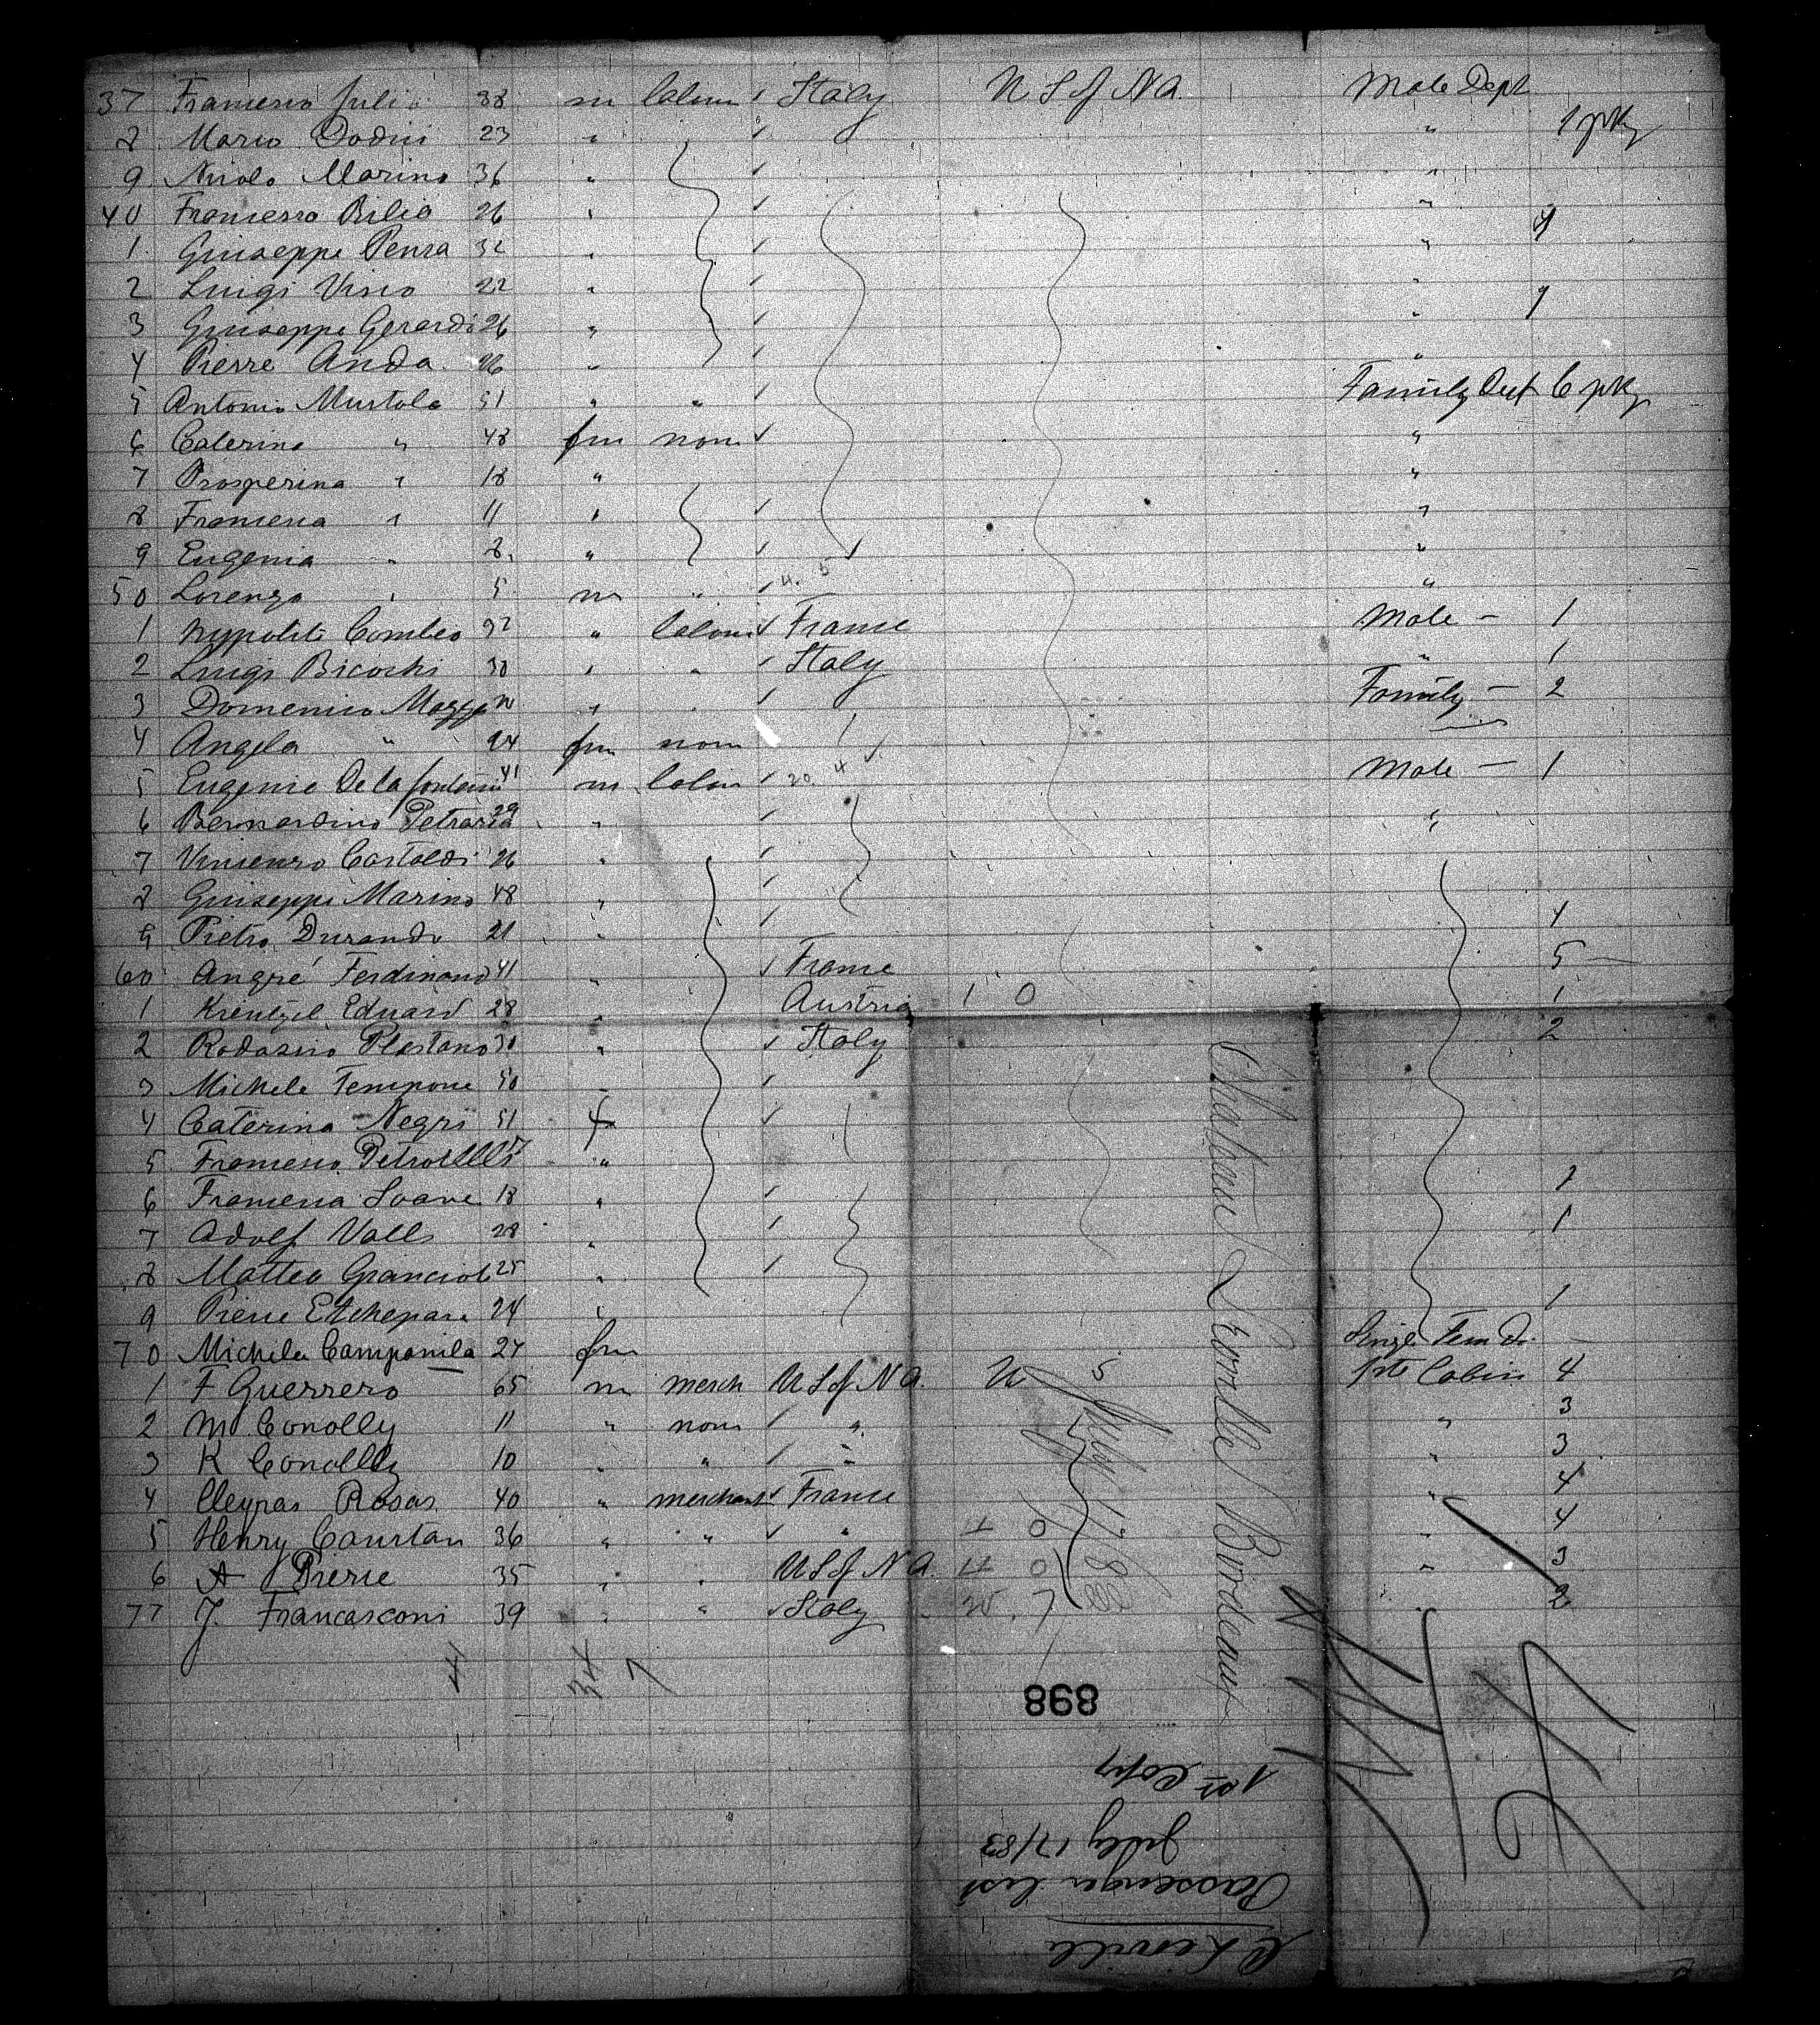 37 Francesco Julio 38 m labour ✓ Italy U S of N A. Male Dept
8 Marco Dodini 23 " ✓ " 1 pkg
9 Nicolo Marino 36 " ✓ "
40 Francesco Bilio 26 " ✓ "
1 Giuseppe Penra 32 " ✓ "
2 Luigi Visco 22 " ✓ "
3 Giuseppe Gerardi 26 " ✓ " 1
4 Pierre Anda 26 " ✓ "
5 Antonio Mustola 51 " " ✓ Family Dept 6 pkg
6 Caterina " 48 fm none ✓ "
7 Prosperina " 18 " "
8 Francesca " 11 " ✓ "
9 Eugenia " 8 " ✓ "
50 Lorenzo " 5 m " ✓ "
1 Hypolite Combes 32 " labour ✓ France Male - 1
2 Luigi Bicochi 30 " " ✓ Italy " 1
3 Domenico Maggi " " ✓ Family - 2
4 Angela " 24 fm none
5 Eugenio De la fontaine 41 m labour ✓ Male - 1
6 Bernardino Petrarca 29 " ✓ "
7 Vincenzo Castaldi 26 " ✓
8 Giuseppe Marino 48 " ✓
9 Pietro Durando 21 " ✓ 4
60 Angré Ferdinand 41 " ✓ France 5
1 Krentzel Eduard 28 " Austria 1 0 1
2 Rodasino Plastano 30 " ✓ Italy 2
3 Michele Tempone 50 " ✓
4 Caterina Negri 51 f ✓
5 Francesco Petrocelli "
6 Francesca Soave 18 " ✓ 1
7 Adolf Valls 28 " ✓ 1
8 Matteo Grancioli 25 " ✓
9 Pierre Etchepare 24 " 1
70 Michela Campanila 27 fm Single Fem D.
1 F Guerrero 65 m merch U S of N A. 1st Cabin 4
2 M Conolly 11 " none ✓ " " 3
3 K Conolly 10 " " ✓ " " 3
4 Cleyras Rosas 40 " merchant ✓ France " 4
5 Henry Caustan 36 " " ✓ " " 4
6 A Pierre 35 " " U S of N A. " 3
77 J. Francasconi 39 " " ✓ Italy " 2
4 34 7
Chateau Leoville Bordeaux
July 17/83
898
1st Copy
July 17/83
Passenger list
C Leoville